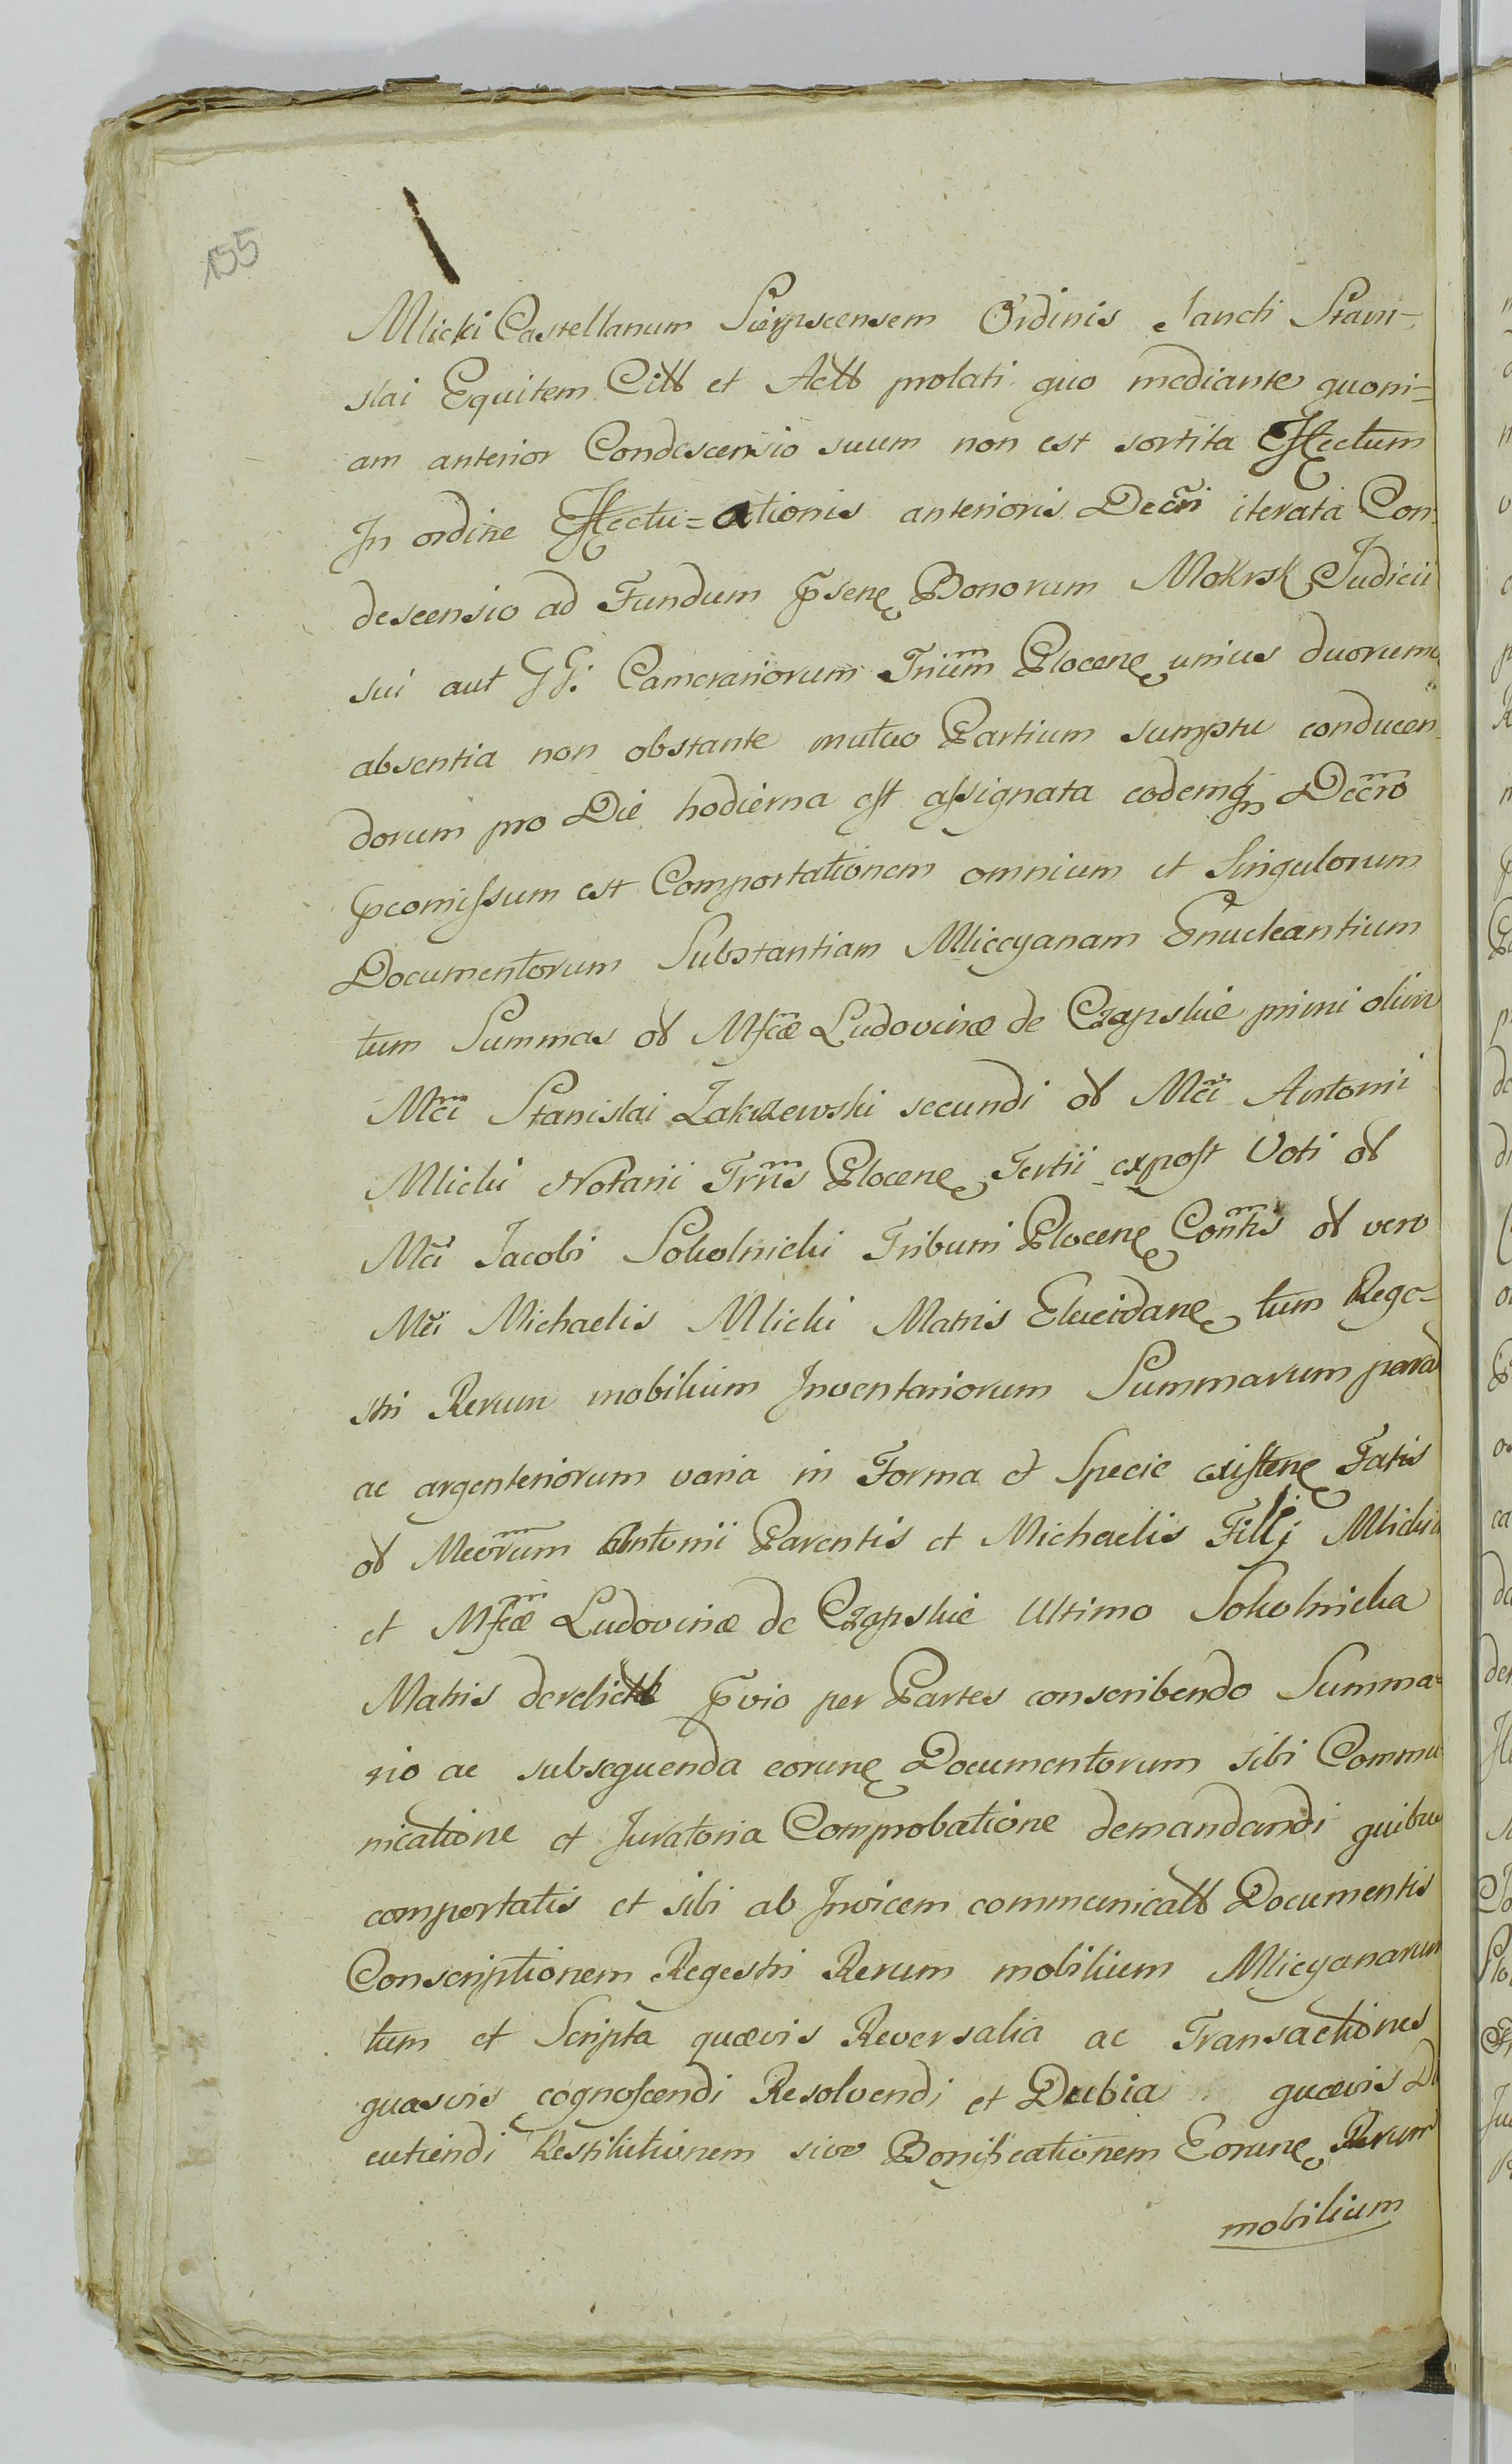 155
Mlicki Castellanum Sierpscensem Ordinis Sancti Stani-
slai Equitem Citt et Actt prolati quo mediante quoni=
am anterior Condescensio suum non est sortita Effectum
In ordine Effectu=ationis anterioris Decri iterata Con
descensio ad Fundum pseñ Bonorum Mokrsk Judicii
sui aut GG: Camerariorum Trium Ploceñ unius duorumq
absentia non obstante mutuo Partium sumptu conducen
dorum pro Die hodierna est assignata eodemq Decro
pcomissum est Comportationem omnium et Singulorum
Documentorum Substantiam Mliccyanam Enucleantium
tum Summas et Mfcæ Ludovicæ de Czapskie primi olim
Mci Stanislai Zakrzewski secundi et Mci Antonii
Mlicki Notarii Trris Ploceñ Tertii expost Voti et
Mci Jacobi Sokolnicki Tribuni Ploceñ Conthis et vero
Mci Michaelis Mlicki Matris Elucidañ tum Rege-
stri Rerum mobilium Inventariorum Summarum parat
ac argenteriorum varia in Forma et Specie existeñ Fatis
et Mcorum Antonii Parentis et Michaelis Filij Mlickich
et Mfcæ Ludovicæ de Czapskie Ultimo Sokolnicka
Matris derelictt pvio per Partes conscribendo Summa=
rio ac subsequenda eoruñ Documentorum sibi Commu
nicatione et Juratoria Comprobatione demandandi quibus
comportatis et sibi ab Invicem communicatt Documentis
Conscriptionem Regestri Rerum mobilium Mlicyanarum
tum et Scripta quævis Reversalia ac Transactiones
quasvis cognoscendi Resolvendi et Dubia quævis Di
cutiendi Restitutionem sive Bonificationem Eoruñ Rerum
mobilium